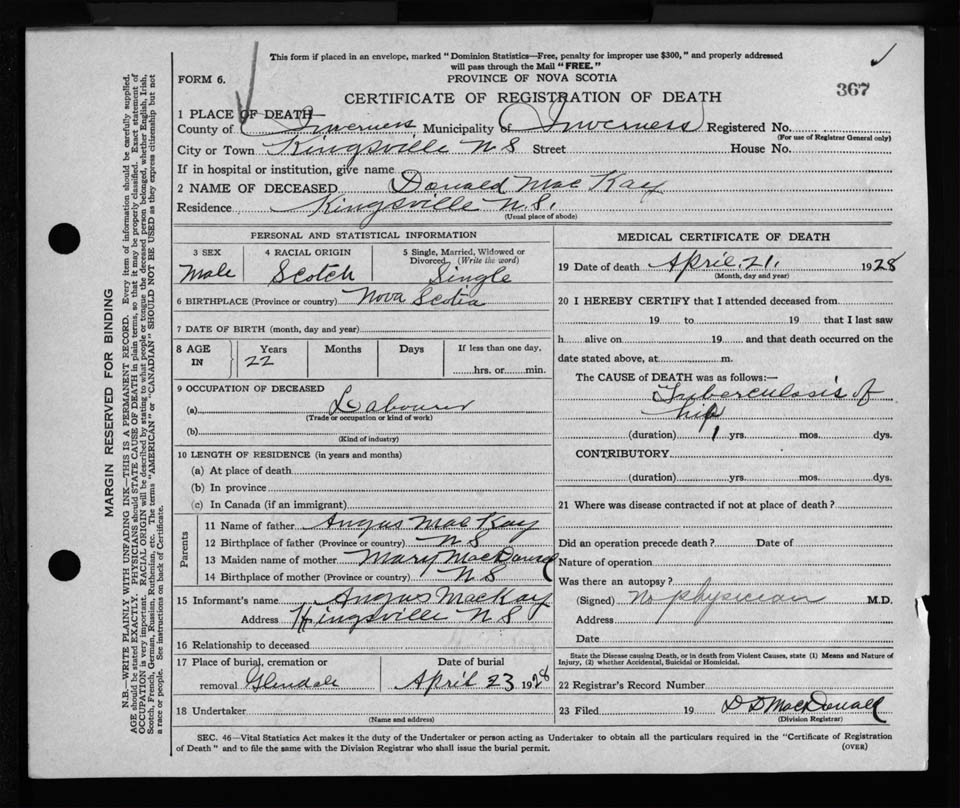 This form if placed in an envelope, marked "Dominion Statistics—Free, penalty for improper use $300," and properly addressed
will pass through the Mail "FREE."
FORM 6.
PROVINCE OF NOVA SCOTIA
367
CERTIFICATE OF REGISTRATION OF DEATH
1 PLACE OF DEATH—
County of Inverness, Municipality of Inverness Registered No.
(For use of Registrar General only)
City or Town Kingsville N S Street House No.
If in hospital or institution, give name
2 NAME OF DECEASED Donald Mac Kay
Residence Kingsville N.S.
(Usual place of abode)
PERSONAL AND STATISTICAL INFORMATION
3 SEX
Male
4 RACIAL ORIGIN
Scotch
5 Single, Married, Widowed or
Divorced (Write the word)
Single
6 BIRTHPLACE (Province or country) Nova Scotia
7 DATE OF BIRTH (month, day and year)
8 AGE
IN
Years
22
Months
Days
If less than one day,
hrs. or min.
9 OCCUPATION OF DECEASED
(a) Labourer
(Trade or occupation or kind of work)
(b)
(Kind of industry)
10 LENGTH OF RESIDENCE (in years and months)
(a) At place of death
(b) In province
(c) In Canada (if an immigrant)
Parents
11 Name of father Angus MacKay
12 Birthplace of father (Province or country) N S
13 Maiden name of mother Mary MacDonald
14 Birthplace of mother (Province or country) N S
15 Informant's name Angus MacKay
Address Kingsville N S
16 Relationship to deceased
17 Place of burial, cremation or
removal Glendale
Date of burial
April 23 1928
18 Undertaker
(Name and address)
MEDICAL CERTIFICATE OF DEATH
19 Date of death April 21, 1928
(Month, day and year)
20 I HEREBY CERTIFY that I attended deceased from
19 to 19 that I last saw
h alive on 19 and that death occurred on the
date stated above, at m.
The CAUSE of DEATH was as follows:—
Tuberculosis of
hip
(duration) 1 yrs. mos. dys.
CONTRIBUTORY
(duration) yrs. mos. dys.
21 Where was disease contracted if not at place of death?
Did an operation precede death? Date of
Nature of operation
Was there an autopsy?
(Signed) No physician M.D.
Address
Date
State the Disease causing Death, or in death from Violent Causes, state (1) Means and Nature of
Injury, (2) whether Accidental, Suicidal or Homicidal.
22 Registrar's Record Number
23 Filed 19 D D MacDonald
(Division Registrar)
SEC. 46—Vital Statistics Act makes it the duty of the Undertaker or person acting as Undertaker to obtain all the particulars required in the "Certificate of Registration
of Death" and to file the same with the Division Registrar who shall issue the burial permit.
(OVER)
MARGIN RESERVED FOR BINDING
N.B.—WRITE PLAINLY WITH UNFADING INK—THIS IS A PERMANENT RECORD. Every item of information should be carefully supplied.
AGE should be stated EXACTLY. PHYSICIANS should STATE CAUSE OF DEATH in plain terms, so that it may be properly classified. Exact statement of
OCCUPATION is very important. RACIAL ORIGIN will be described by stating to what people or tongue the deceased person belonged, whether English, Irish,
Scotch, French, German, Russian, Ruthenian, etc. The terms "AMERICAN" or "CANADIAN" SHOULD NOT BE USED as they express citizenship but not
a race or people. See instructions on back of Certificate.